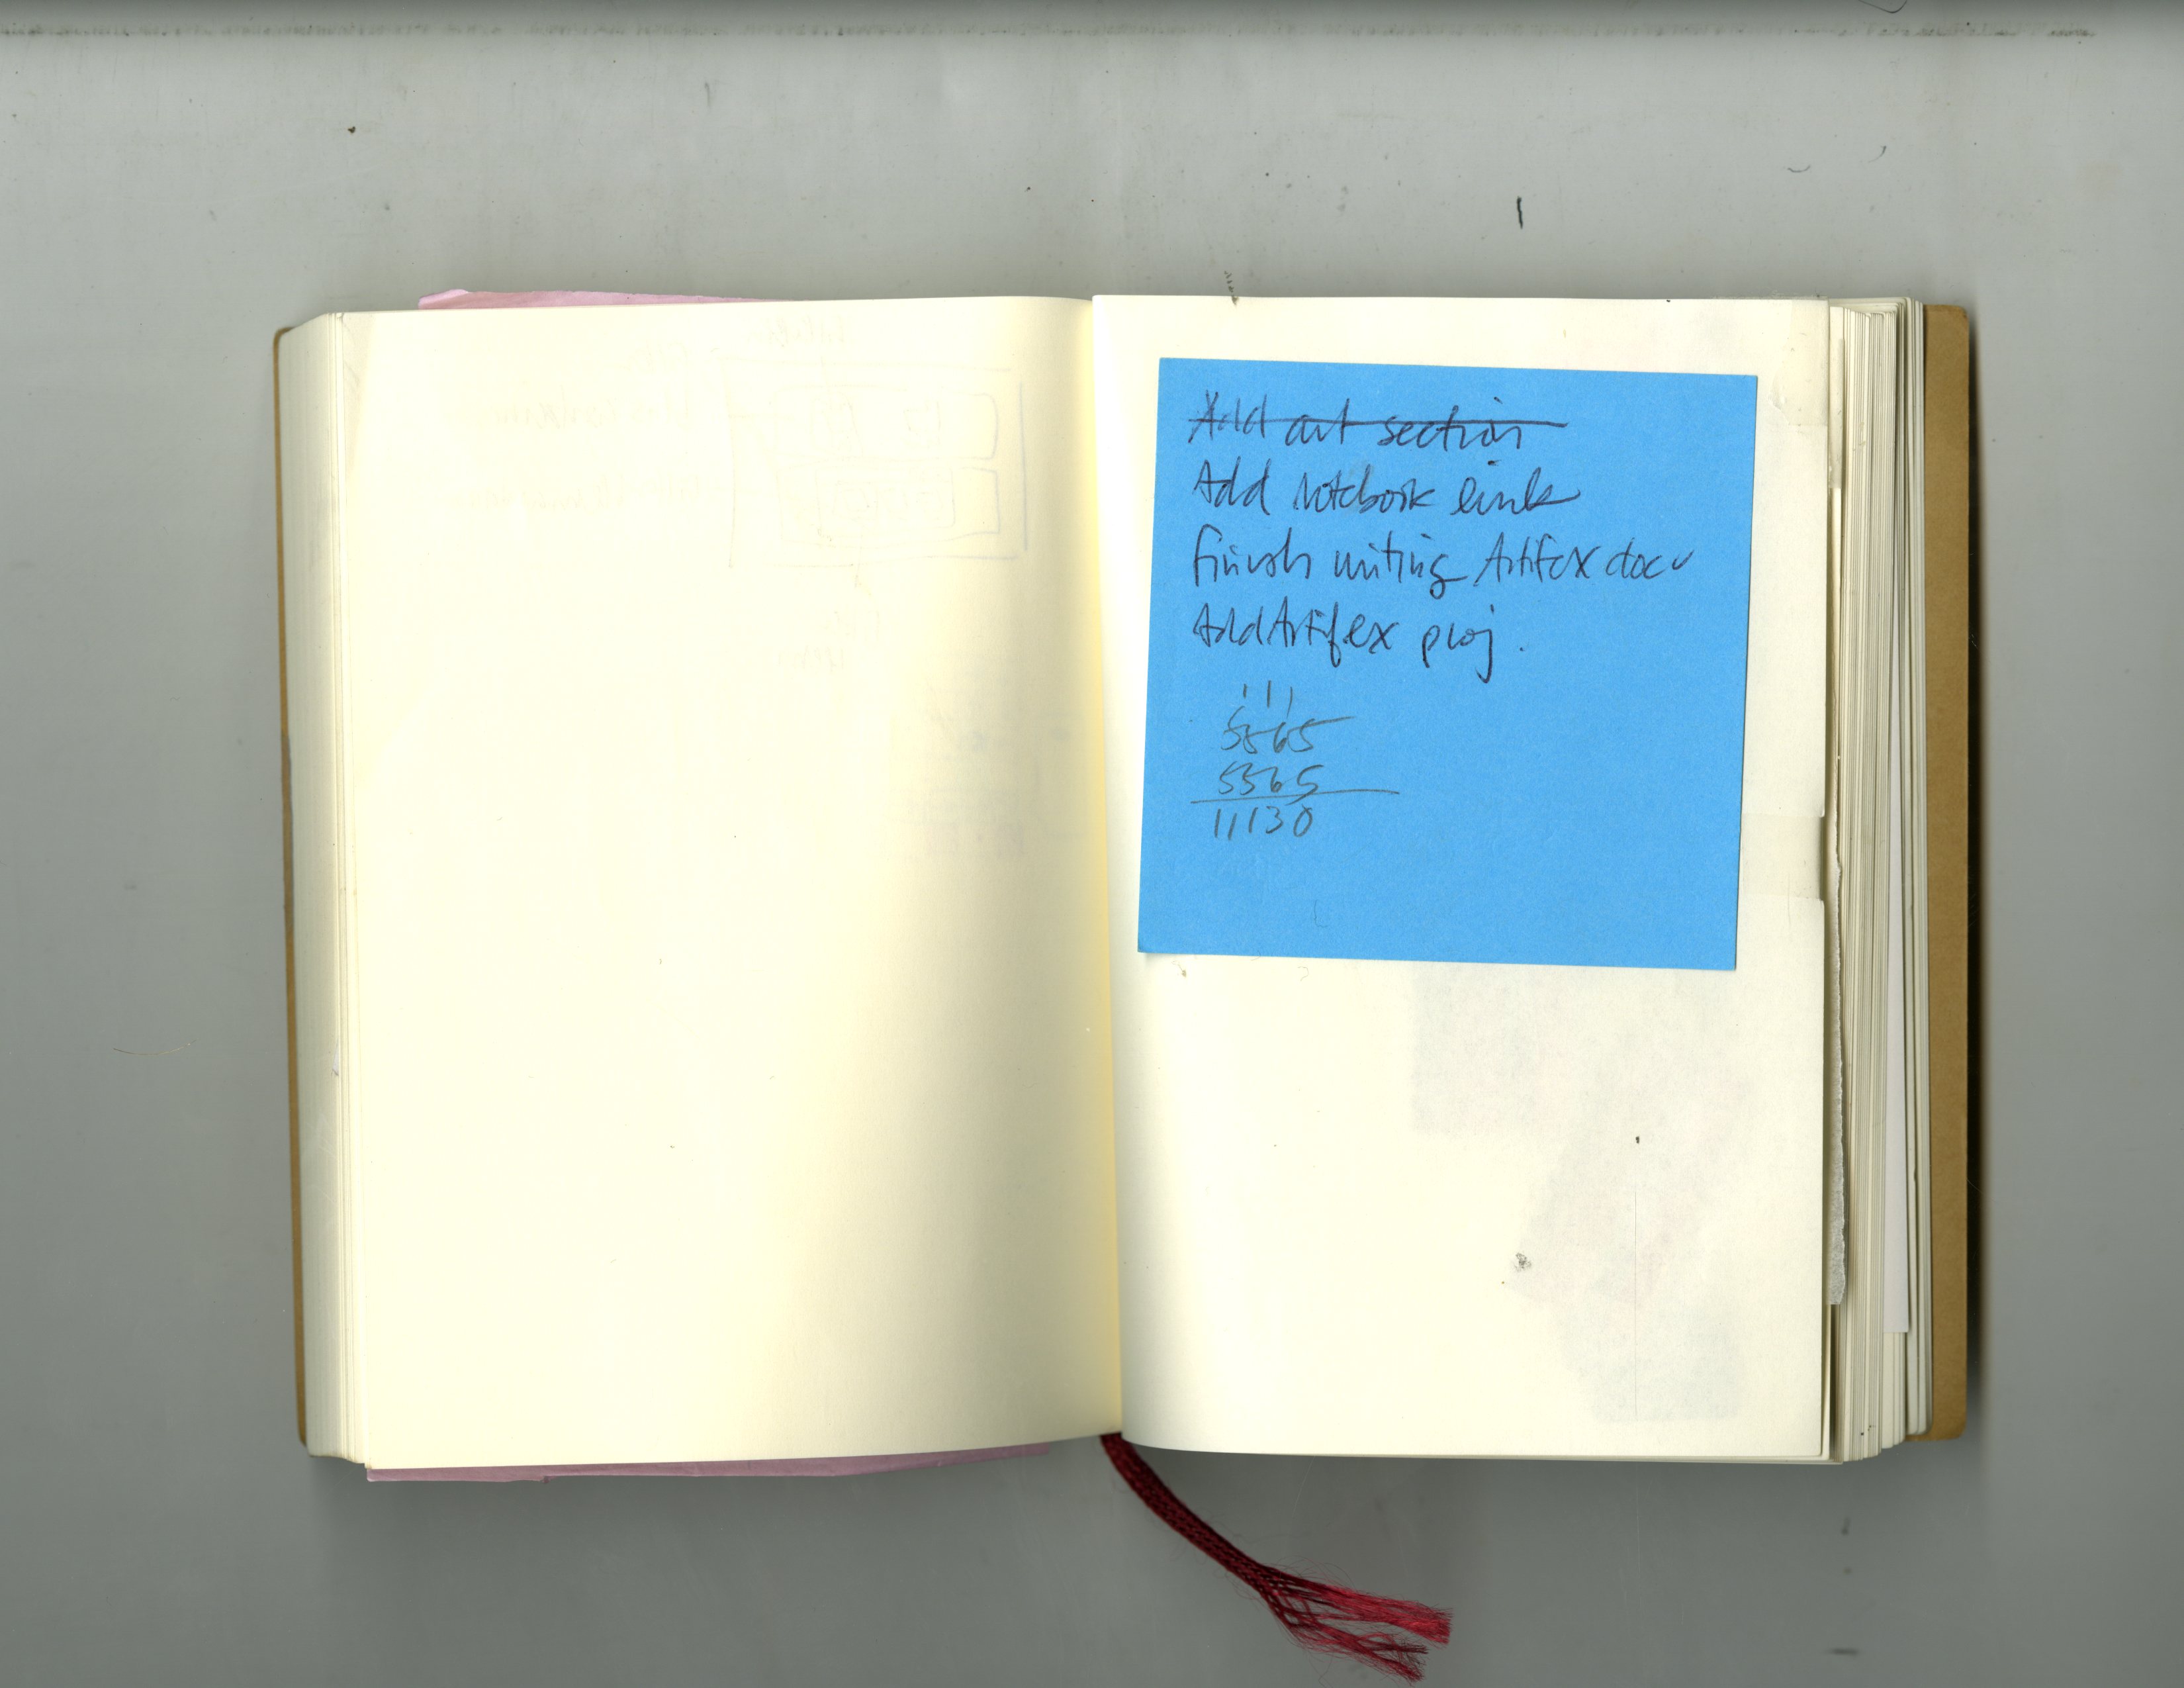 Add art section
Add Notebook link
finish writing Artifex docu
Add Artifex proj.
111
5565
5565
11130